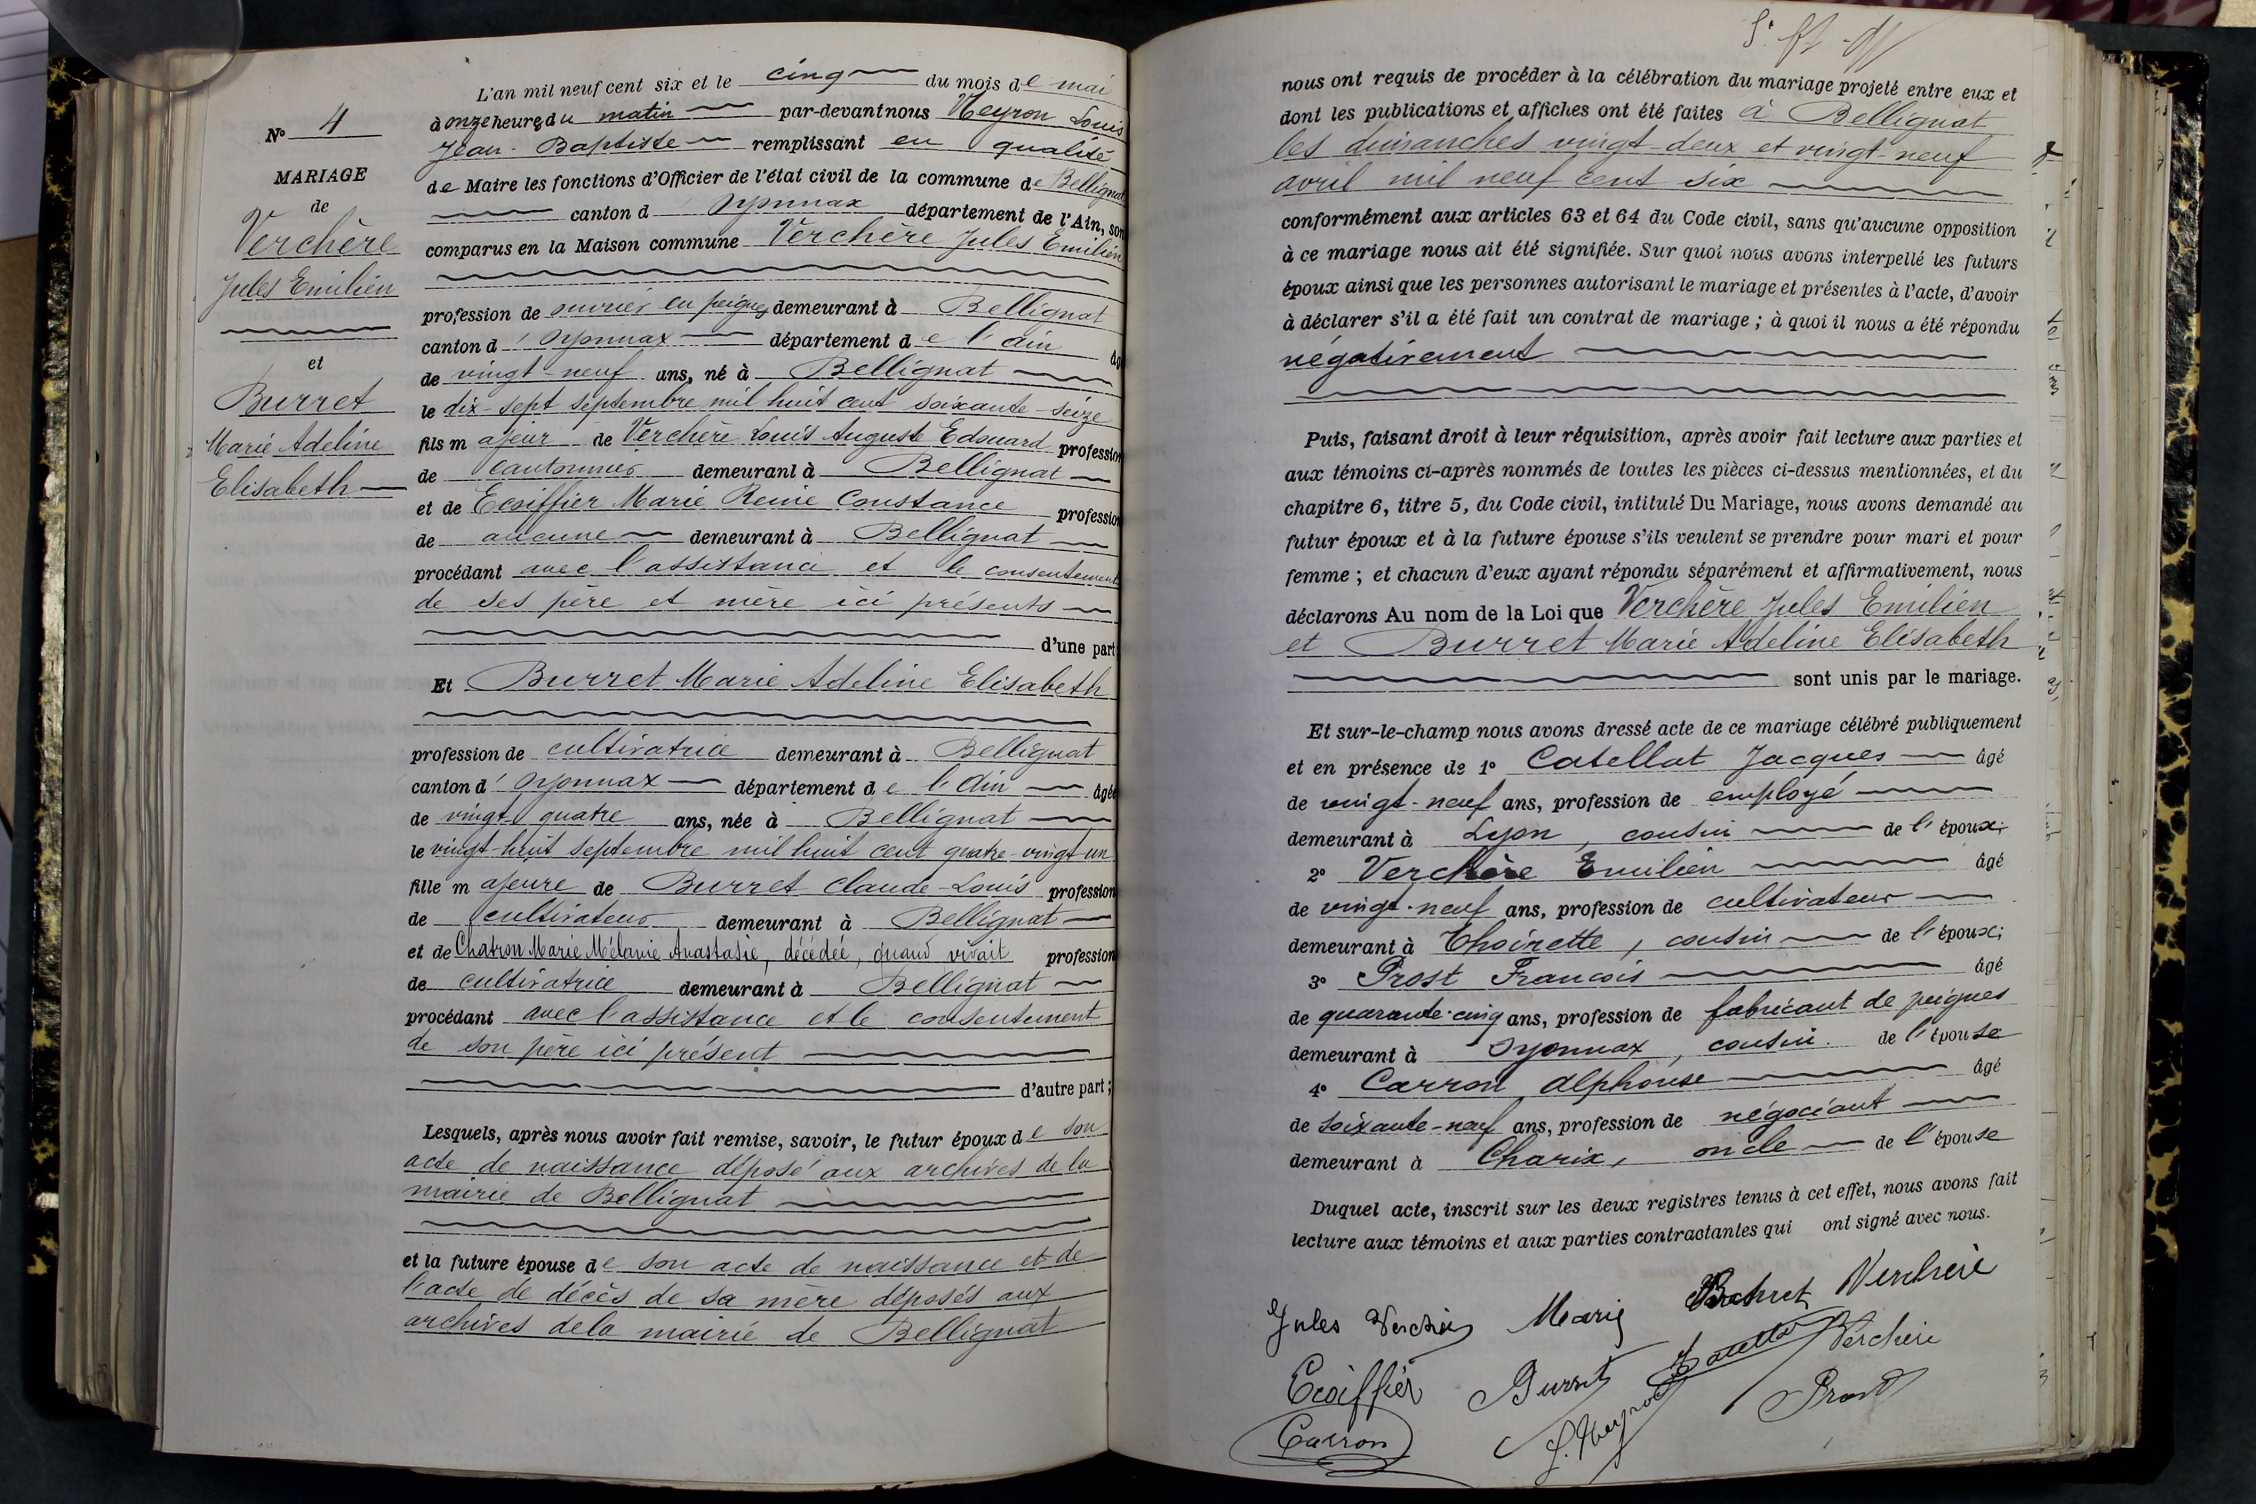 N° 4
MARIAGE
de
Verchère
Jules Emilien
et
Burret
Marie Adeline
Elisabeth
L'an mil neuf cent six et le cinq du mois de mai
à onze heures du matin par-devant nous Meyron Louis
Jean-Baptiste remplissant en qualité
de Maire les fonctions d'Officier de l'état civil de la commune de Bellignat
canton d' Oyonnax département de l'Ain, son
comparus en la Maison commune Verchère Jules Emilien
profession de ouvrier en peignes demeurant à Bellignat
canton d' Oyonnax département de l'ain âgé
de vingt-neuf ans, né à Bellignat
le dix-sept septembre mil huit cent soixante-seize
fils majeur de Verchère Louis Auguste Edouard profession
de cantonnier demeurant à Bellignat
et de Ecoiffier Marie Reine Constance profession
de aucune demeurant à Bellignat
procédant avec l'assistance et le consentement
de ses père et mère ici présents
d'une part
Et Burret Marie Adeline Elisabeth
profession de cultivatrice demeurant à Bellignat
canton d' Oyonnax département de l'Ain âgée
de vingt quatre ans, née à Bellignat
le vingt-huit septembre mil huit cent quatre-vingt-un
fille majeure de Burret Claude-Louis profession
de cultivateur demeurant à Bellignat
et de Chatron Marie Mélanie Anastasie, décédée, quand vivait profession
de cultivatrice demeurant à Bellignat
procédant avec l'assistance et le consentement
de son père ici présent
d'autre part ;
Lesquels, après nous avoir fait remise, savoir, le futur époux de son
acte de naissance déposé aux archives de la
mairie de Bellignat
et la future épouse de son acte de naissance et de
l'acte de décès de sa mère déposés aux
archives de la mairie de Bellignat
nous ont requis de procéder à la célébration du mariage projeté entre eux et
dont les publications et affiches ont été faites à Bellignat
les dimanches vingt-deux et vingt-neuf
avril mil neuf cent six
conformément aux articles 63 et 64 du Code civil, sans qu'aucune opposition
à ce mariage nous ait été signifiée. Sur quoi nous avons interpellé les futurs
époux ainsi que les personnes autorisant le mariage et présentes à l'acte, d'avoir
à déclarer s'il a été fait un contrat de mariage ; à quoi il nous a été répondu
négativement
Puis, faisant droit à leur réquisition, après avoir fait lecture aux parties et
aux témoins ci-après nommés de toutes les pièces ci-dessus mentionnées, et du
chapitre 6, titre 5, du Code civil, intitulé Du Mariage, nous avons demandé au
futur époux et à la future épouse s'ils veulent se prendre pour mari et pour
femme ; et chacun d'eux ayant répondu séparément et affirmativement, nous
déclarons Au nom de la Loi que Verchère Jules Emilien
et Burret Marie Adeline Elisabeth
sont unis par le mariage.
Et sur-le-champ nous avons dressé acte de ce mariage célébré publiquement
et en présence de 1° Catellat Jacques âgé
de vingt-neuf ans, profession de employé
demeurant à Lyon, cousin de l'époux;
2° Verchère Emilien âgé
de vingt-neuf ans, profession de cultivateur
demeurant à Thoirette, cousin de l'époux;
3° Prost Francois âgé
de quarante-cinq ans, profession de fabricant de peignes
demeurant à Oyonnax, cousin de l'épouse
4° Carron Alphonse âgé
de soixante-neuf ans, profession de négociant
demeurant à Charix, oncle de l'épouse
Duquel acte, inscrit sur les deux registres tenus à cet effet, nous avons fait
lecture aux témoins et aux parties contractantes qui ont signé avec nous.
Jules Verchère Marie Burret Verchère
Ecoiffier Burret Catellat Verchère
Carron L. Meyron Prost